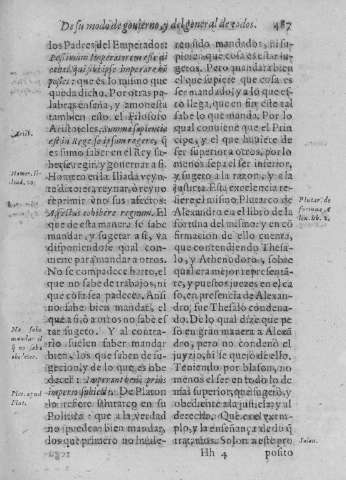 De su modo de gouierno, y del general de todos. 487
los Padres del Emperador:
Pessimum Imperatorem esse di
cebat, qui sibi ipse imperare nõ
posset: que es lo mismo que
queda dicho. Por otras pa-
labras enseña, y amonesta
tambien esto el Filosofo
Aristoteles, Summa sapiencia
est in Rege se ipsum regere, q̃
es sumo saber en el Rey sa-
berse regir, y gouernar a si.
Homero en la Iliada veyn-
te dize era reynar, ò reyno
reprimir vno sus afectos:
Affectus cohibere regnum. El
que desta manera se sabe
mandar, y sugetar a si, va
disponiendose qual con-
uiene para mandar a otros.
No se compadece harto, el
que no sabe de trabajos, ni
que cosa sea padecer. Ansi
no sabe bien mandar, el
que a si, ò a otros no sabe es
tar sugeto. Y al contra-
rio suelen saber mandar
bien, los que saben de su-
gecion, y de lo que es obe
decer: Imperanti bene, prius
imperio subiecti. De Platon
lo refiere Plutarco en su
Politica: que a la verdad
no pueden bien mandar,
los que primero no huuie-
Arist.
Homer. Ili-
liad. 20.
No sabe
mandar el
q̃ no sabe
obedecer.
Plut. apud
Plat.
ren sido mandados, ni su-
pieren que cosa es estar su-
getos. Pero mandarà bien
el que supiere que cosa es
ser mandado, y a lo que es-
to llega, que en fin este tal
sabe lo que manda. Por lo
qual conuiene que el Prin
cipe, y el que huuiere de
ser superior a otros, por lo
menos sepa el ser inferior,
y sugeto a la razon, y a la
justicia. Esta excelencia re-
fiere el mismo Plutarco de
Alexandro en el libro de la
fortuna del mismo: y en cõ
firmacion de ello cuenta,
que contendiendo Thesa-
lo, y Athenodoro, sobre
qual era mejor representã-
te, y puestos juezes en el ca
so, en presencia de Alexan-
dro, fue Thesalo condena-
do. De lo qual dize que pe
sò en gran manera a Alexã
dro, pero no condenò el
juyzio, ni se quexò dello.
Teniendo por blason, no
menos el ser en todo lo de
mas superior, que sugeto, y
obediente a la justicia, y al
derecho. Que es el exem-
plo, y la enseñan, a
tratamos. Solon a este pro
Plutar. de
fortuna, &
Alex. lib. 2.
Solon.
Hh 4 posito